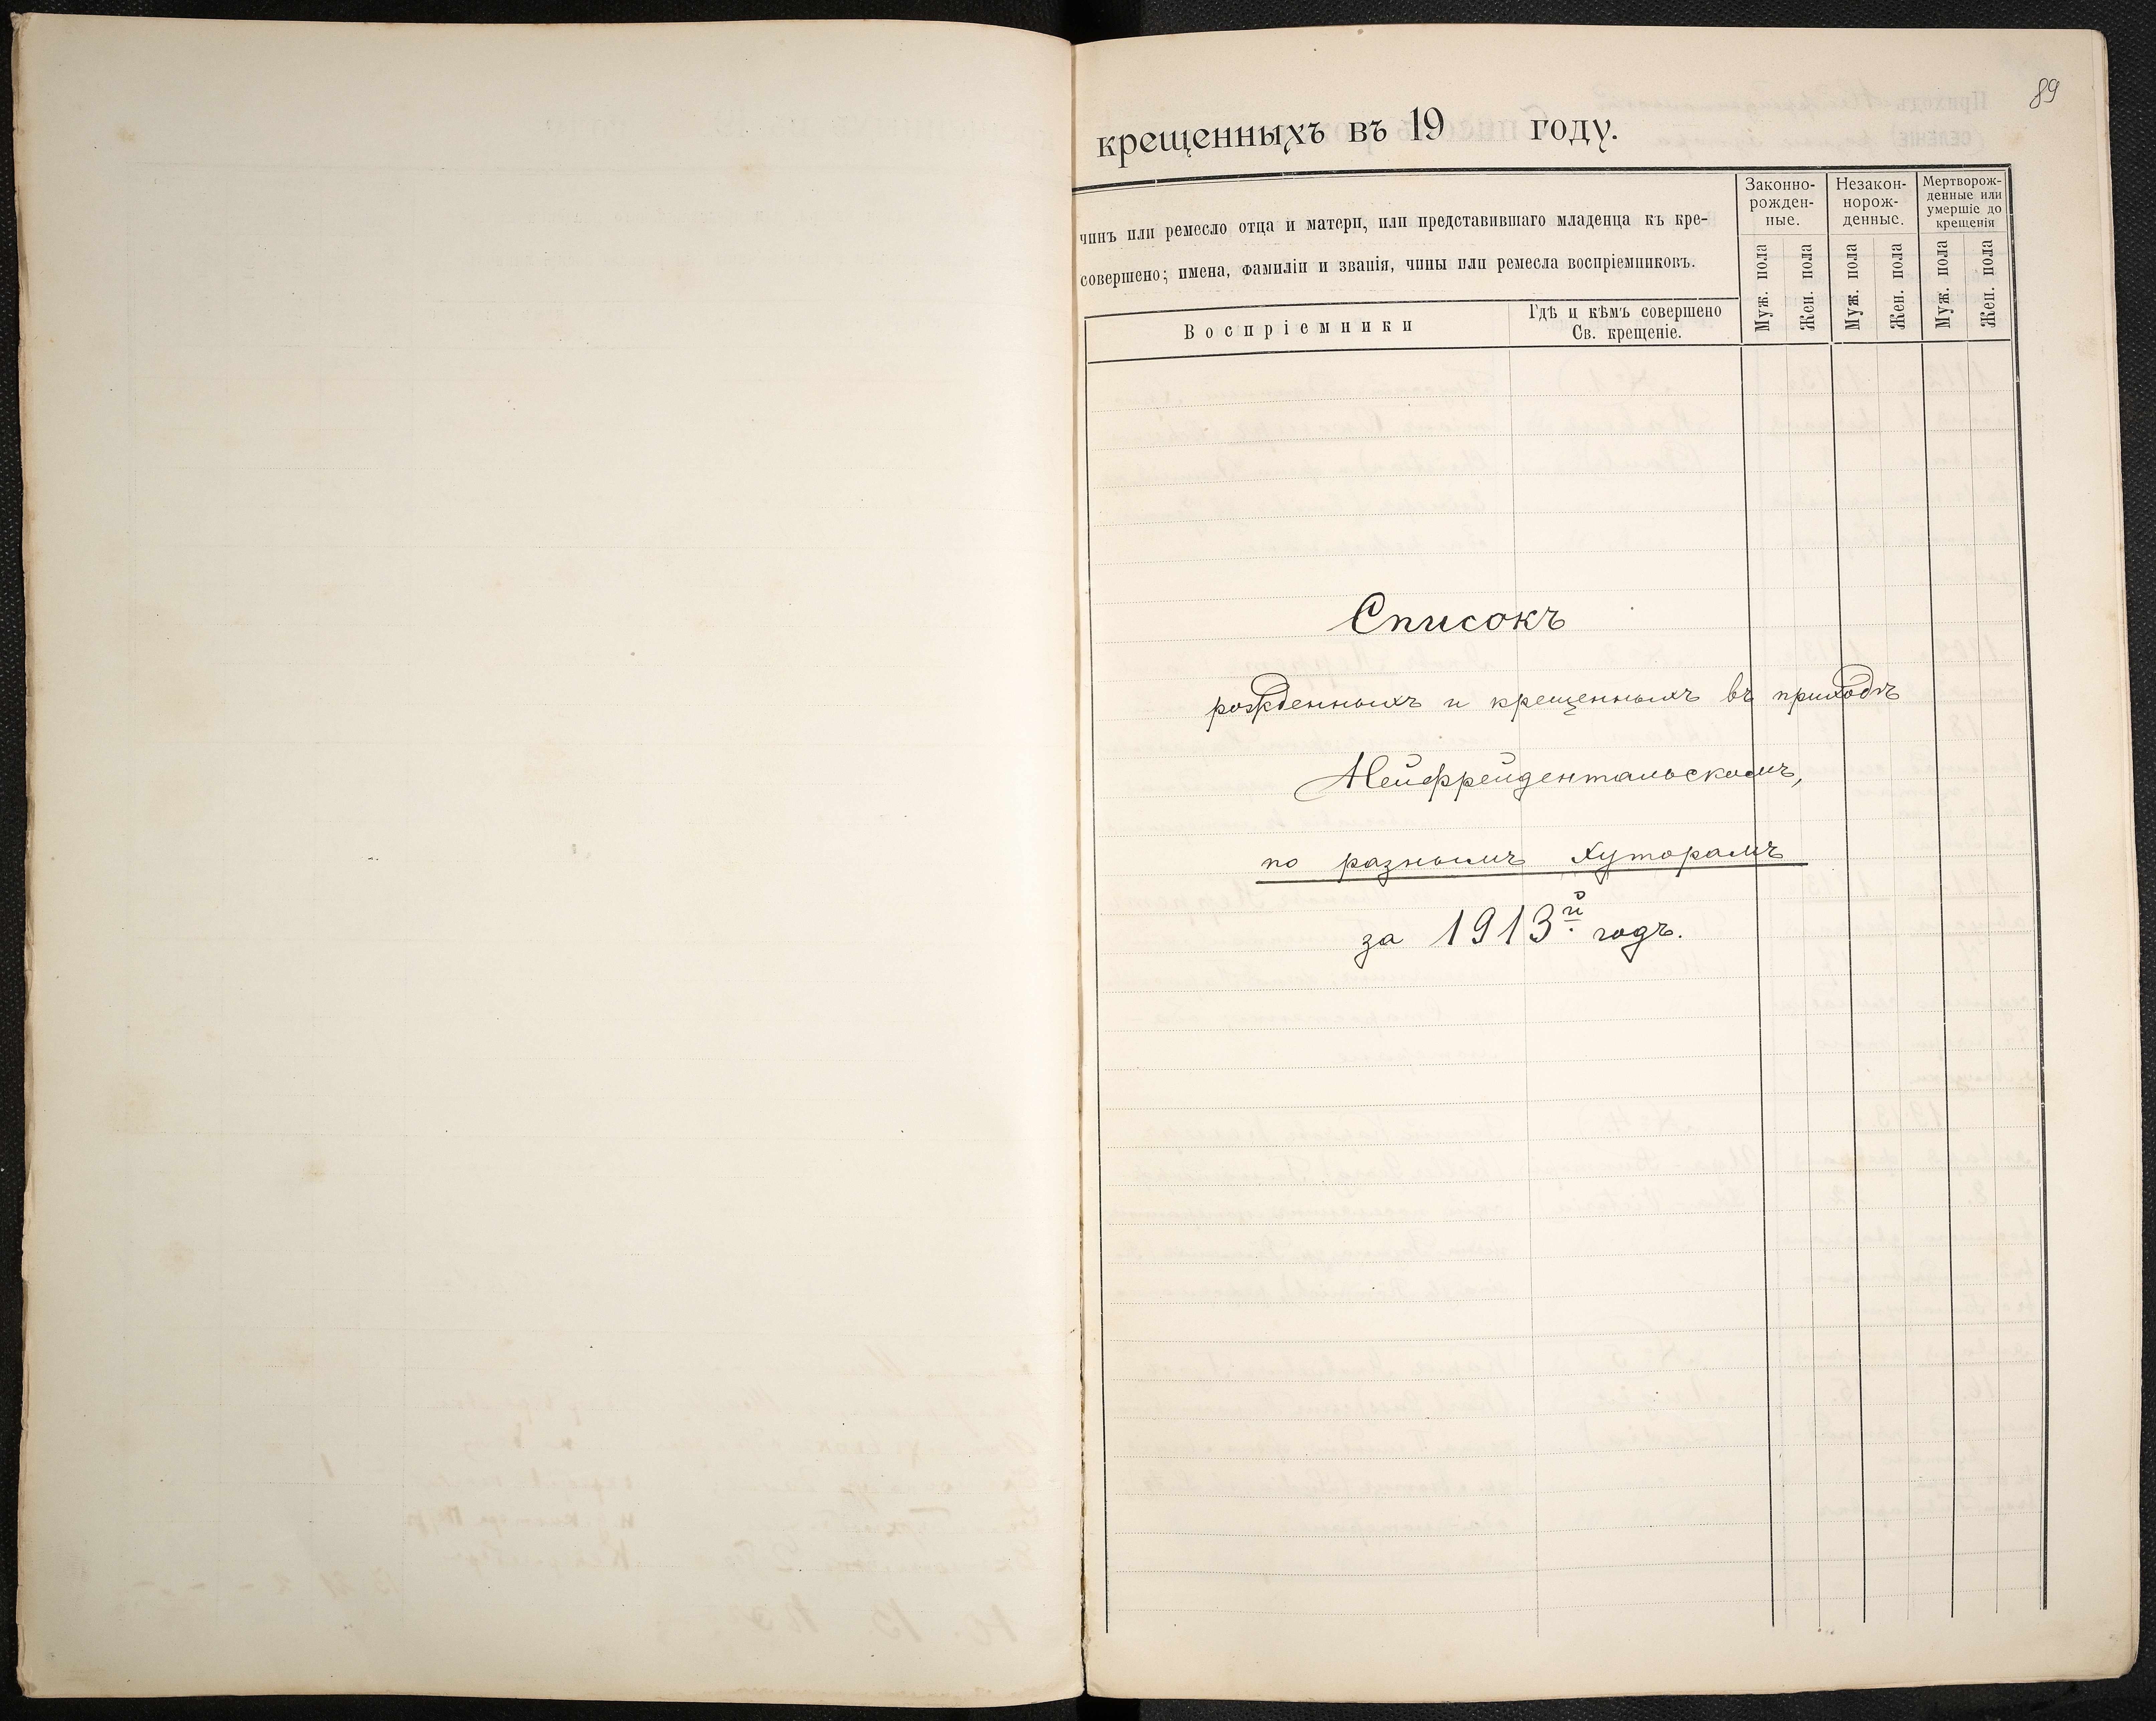 89
крещенныхъ въ 19 году.
чинъ или ремесло отца и матери, или представившаго младенца къ кре-
совершено; имена, фамиліи и званія, чины или ремесла воспріемниковъ.
Воспріемники
Гдѣ и кѣмъ совершено
Св. крещеніе.
Законно-
рожден-
ные.
Незакон-
норож-
денные.
Мертворож-
денные или
умершіе до
крещенія
Муж. пола
Жен. пола
Муж. пола
Жен. пола
Муж. пола
Жен. пола
Списокъ
рожденныхъ и крещенныхъ въ приходѣ
Нейфрейдентальскомъ,
по разнымъ хуторамъ
за 1913й годъ.